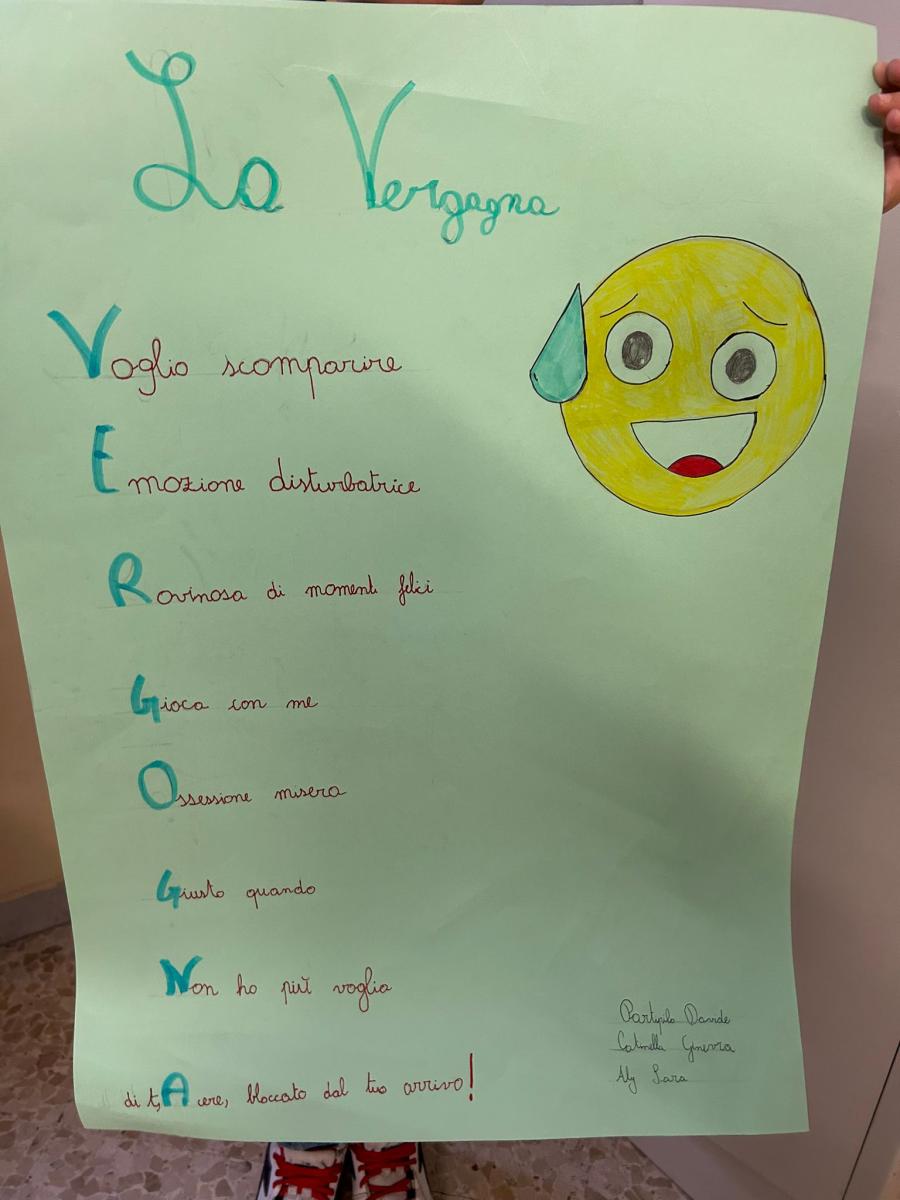 La Vergagna
Voglio scomparire
Emozione disturbatrice
Rovinosa di momenti felici
Gioca con me
Ossessione misera
Giusto quando
Non ho più voglia
di t,Acere, bloccato dal tuo arrivo!
Partipilo Davide
Catinella Ginevra
Aly Sara